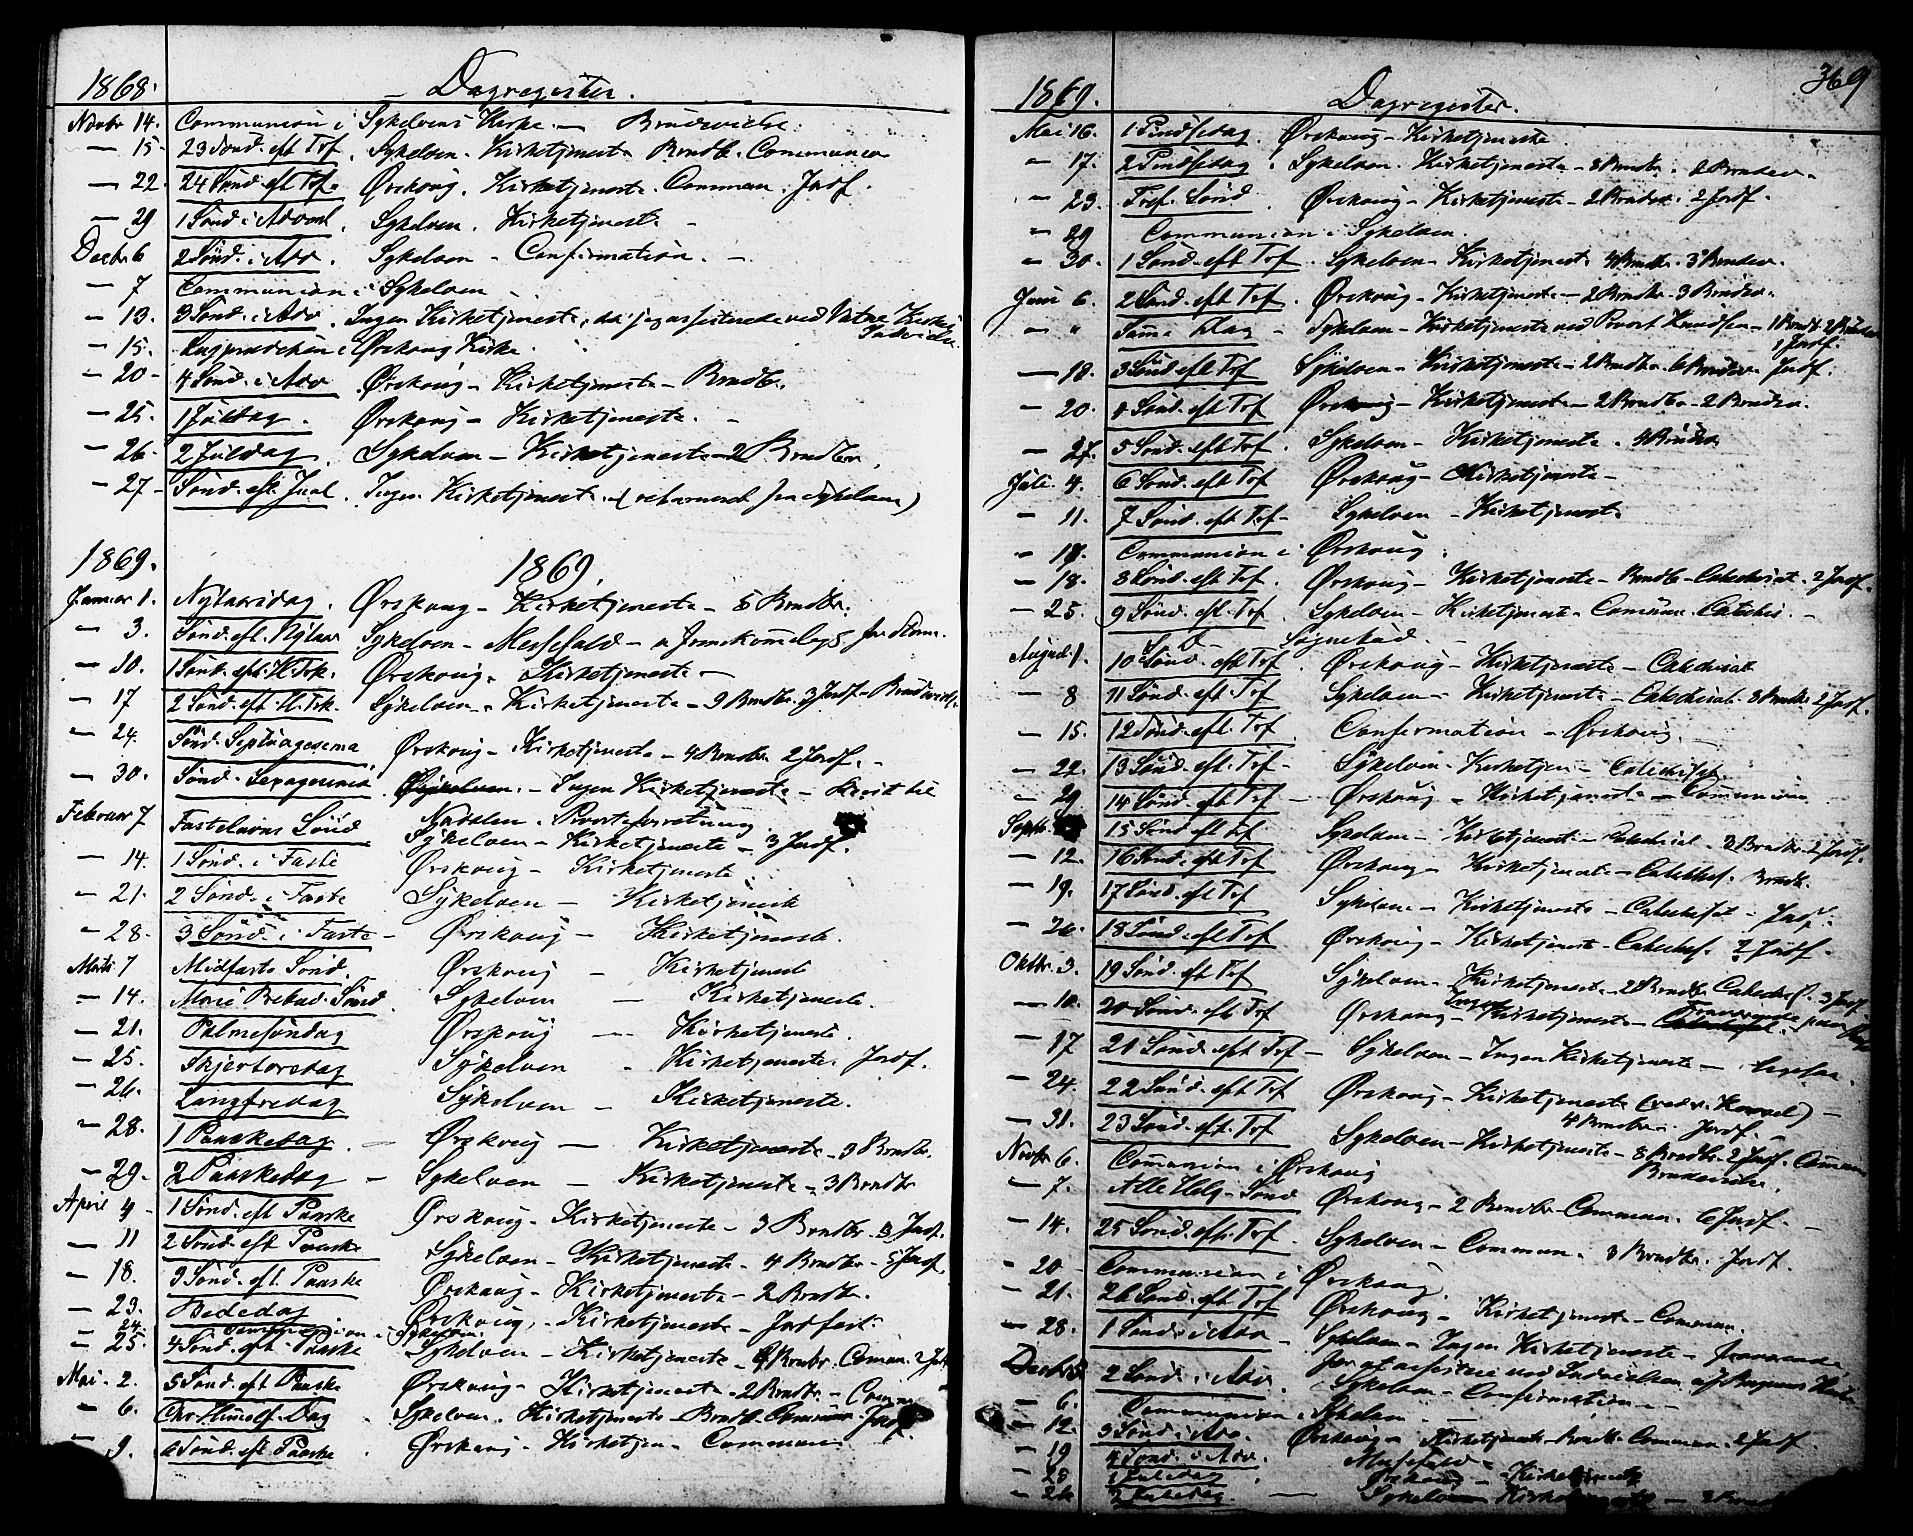 1868. Dagregister.
Novbr 14. Communion i Sykelvens Kirke. — Brudevielse.
— 15. 23 Sønd. eft Tof. Sykelven. Kirketjeneste Brndb. Communion
— 22. 24 Sønd. eft Tof. Ørskoug. Kirketjeneste. Commun. Jndf.
— 29 1 Sønd. i Advent. Sykelven. Kirketjeneste —
Decbr 6 2 Sønd. i Adv. Sykelven — Confirmation. —
— 7 Communion i Sykelven —
— 13. 3 Sønd. i Adv. Ingen Kirketjeneste, da jeg assisterede ved Vatne Kirkes Indvielse
— 15. i Ørskoug Kirke.
— 20 — 4 Sønd. i Adv Ørskoug — Kirketjeneste — Brndb.
— 25. 1 Juldag. Ørskoug — Kirketjeneste. —
— 26. 2 Juldag. Sykelven — Kirketjeneste — 2 Brndbr.
— 27 — Sønd. eft. Juul. Ingen Kirketjeneste — (returneret fra Sykelven)
1869. 1869.
Januar 1. Nytaarsdag. Ørskoug — Kirketjeneste — 5 Brndbr.
— 3. Sønd. eft. Nytaar Sykelven — Messefald —
— 10. 1 Sønd. eft. H. Trk. Ørskoug. Kirketjeneste —
— 17 2 Sønd. eft H. Trk. Sykelven — Kirketjeneste — 9 Brndbr. 3 Jndf — Brudevielse.
— 24. Sønd. Septuagesima. Ørskoug — Kirketjeneste — 4 Brndbr 2 Jndf. —
— 30. Sønd. Sexagesima. Sykelven. — Ingen Kirketjeneste — Reist til
Nadalen. Provsteforretning
Februar 7 Fastelavns Sønd Sykelven — Kirketjeneste — 3 Jndf.
— 14. 1 Sønd. i Faste Ørskoug — Kirketjeneste
— 21. 2 Sønd. i Faste Sykelven — Kirketjeneste
— 28. 3 Sønd. i Faste — Ørskoug — Kirketjeneste.
Marts 7 Midfaste Sønd. Ørskoug — Kirketjeneste
— 14. Mariæ Bebud. Sønd. Sykelven — Kirketjeneste.
— 21. Palmesøndag Ørskoug — Kirketjeneste.
— 25. Skjertorsdag Sykelven — Kirketjeneste. Jndf.
— 26. Langfredag Sykelven — Kirketjeneste.
— 28. 1 Paaskedag. Ørskoug — Kirketjeneste — 3 Brndbr.
— 29. 2 Paaskedag — Sykelven — Kirketjeneste — 3 Brndbr
April 4 — 1 Sønd. eft Paaske Ørskoug — Kirketjeneste — 3 Brndbr. 3 Jndf.
— 11 2 Sønd. eft Paaske Sykelven — Kirketjeneste — 4 Brndbr — 5 Jndf.
— 18. 3 Sønd. eft. Paaske Ørskoug — Kirketjeneste — 2 Brndb.
— 23. Bededag Ørskoug. — Kirketjeneste —
24. Communion i Sykelven.
— 25. 4 Sønd. eft Paaske Sykelven — Kirketjeneste — Brndbr. Comun. 2 Jndf
Mai. 2. 5 Sønd. eft Paaske Ørskoug — Kirketjeneste — 2 Brndbr — Comm
— 6. Chr. Himelf. Dag. Sykelven. Kirketjeneste — Brndb. Commun Jndf.
— 9. 6 Sønd. eft Paaske. Ørskoug — Kirketjen — Commun
369
1869. Dagregister.
Mai 16. 1 Pindsedag. Ørskoug — Kirketjeneste.
— 17. 2 Pindsedag. Sykelven. Kirketjeneste — 3 Brndbr. 2 Brudev.
— 23. Tref. Sønd. Ørskoug — Kirketjeneste — 2 Brudev. 2 Jndf.
— 29 Communion i Sykelven.
— 30. 1 Sønd. eft Tof. Sykelven — Kirketjenest. 4 Brndbr. 3 Brudev.
Juni 6. 2 Sønd. eft Tof. Ørskoug — Kirketjeneste — 2 Brndbr. 3 Brudev.
— " Samme Dag — Sykelven — Kirketjeneste ved Provst Knudsen — 1 Brndb. 2 Brudev. 1 Jndf.
— 13. 3 Sønd. eft Tof Sykelven — Kirketjeneste — 2 Brndbr. 6 Brudev. Jndf.
— 20. 4 Sønd. eft Tof Ørskoug — Kirketjeneste — 2 Brndbr — 2 Brudev.
— 27. 5 Sønd. eft Tof. Sykelven — Kirketjeneste. 4 Brudev
Juli 4. 6 Sønd. eft Tof Ørskoug — Kirketjeneste —
— 11. 7 Sønd. eft Tof — Sykelven — Kirketjeneste
— 17. Communion i Ørskoug.
— 18. 8 Sønd. eft Tof. Ørskoug — Kirketjeneste — Brndb — Catechisat. 2 Jndf.
— 25. 9 Sønd. eft. Tof. Sykelven — Kirketjeneste — Comun. Catechis. —
Sognebud. —
August 1. 10 Sønd. eft Tof. Ørskoug — Kirketjeneste — Catechisat
— 8 11 Sønd. eft Tof Sykelven — Kirketjeneste — Catechisat. 3 Brndbr 2 Jndf.
— 15. 12 Sønd. eft. Tof. Confirmation — Ørskoug. —
— 22. 13 Sønd. eft. Tof — Sykelven — Kirketjen — Catechisat.
— 29 14 Sønd. eft Tof — Ørskoug — Kirketjeneste — Communion
Septb. 15 Sønd. eft Tof Sykelven — Kirketjeneste — Catechisat — 3 Brndbr. 2 Jndf.
— 12. 16 Sønd. eft Tof Ørskoug — Kirketjeneste — Catechis. Brndb.
— 19. 17 Sønd. eft Tof Sykelven — Kirketjeneste — Catechisat — Jndf.
— 26. 18 Sønd. eft Tof Ørskoug — Kirketjeneste — Catechis. 2 Jndf.
Oktbr. 3. 19 Sønd. eft Tof Sykelven — Kirketjeneste — 2 Brndbr Catechis. 3 Jndf
— 10. 20 Sønd. eft Tof Ørskoug — Ingen Kirketjeneste — Fraværende paa
— 17 21 Sønd. eft Tof — Sykelven — Ingen Kirketjeneste —
— 24. 22 Sønd. eft Tof Ørskoug — Kirketjeneste — 4 Brndbr. Jndf. —
— 31. 23 Sønd. eft. Tof Sykelven — Kirketjeneste — 3 Brndbr. 2 Jndf. Commun Brudevielse.
Novbr 6. Comunion i Ørskoug
— 7. Alle Helg — Sønd Ørskoug — 2 Brndbr — Commun. 6 Jndf. —
— 14. 25 Sønd. eft. Tof. Sykelven — Commun. 3 Brndbr. Jndf.
— 20 — Communion i Ørskoug.
— 21. 26 Sønd. eft Tof Ørskoug. Kirketjeneste — Commun.
— 28. 1 Sønd. i Adv — Sykelven — Ingen Kirketjeneste — Fraværende
for at assistere ved Indvielsen af
Decbr 5 2 Sønd. i Adv. Sykelven — Confirmation. —
— 6. Communion i Sykelven —
— 12. 3 Sønd. i Adv. Ørskoug — Kirketjeneste — Brndb. Commun. 2 Jndf.
— 19 4 Sønd. i Adv. Messefald —
— 25 1 Juledag Ørskoug — Kirketjeneste
— 26 2 Juledag. — Sykelven — Kirketjeneste — 3 Brndb